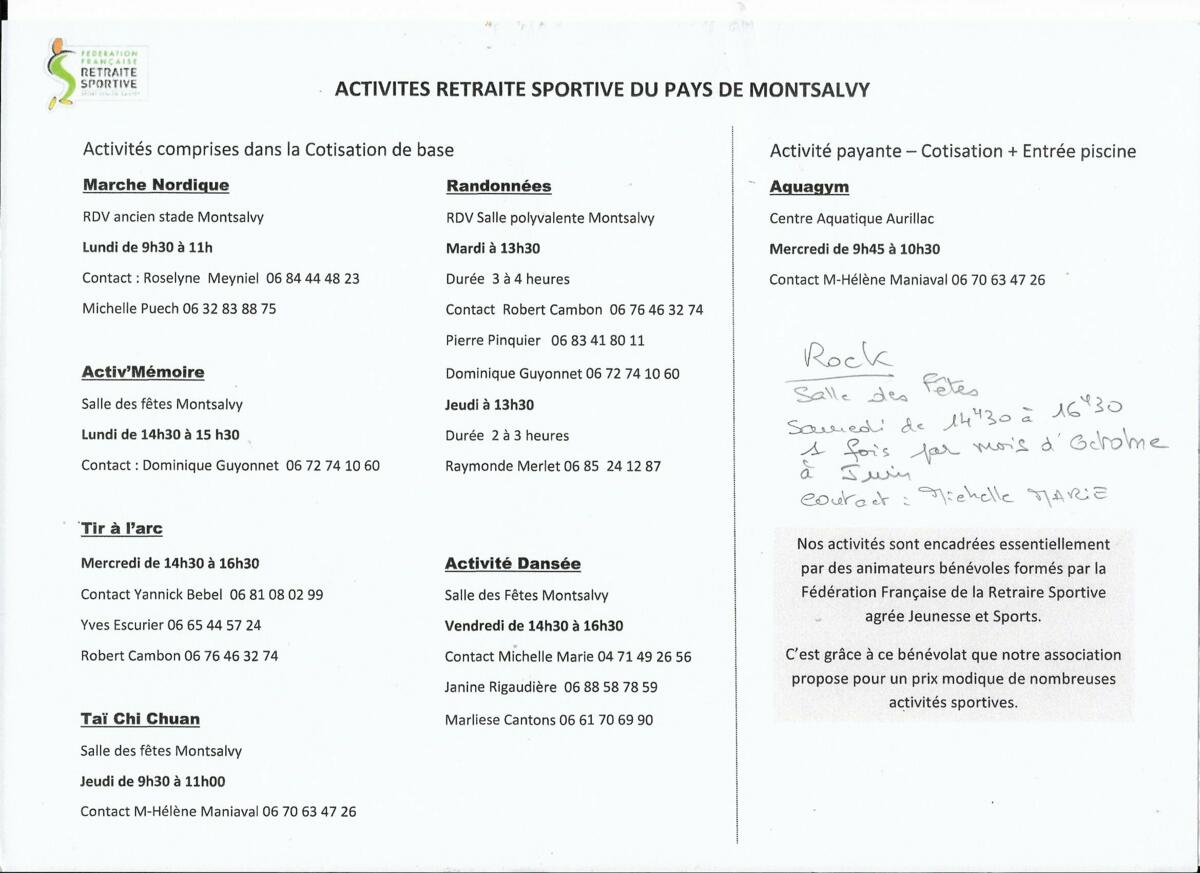 FEDERATION
FRANÇAISE
RETRAITE
SPORTIVE
ACTIVITES RETRAITE SPORTIVE DU PAYS DE MONTSALVY
Activités comprises dans la Cotisation de base
Marche Nordique
RDV ancien stade Montsalvy
Lundi de 9h30 à 11h
Contact : Roselyne Meyniel 06 84 44 48 23
Michelle Puech 06 32 83 88 75
Activ'Mémoire
Salle des fêtes Montsalvy
Lundi de 14h30 à 15 h30
Contact : Dominique Guyonnet 06 72 74 10 60
Tir à l'arc
Mercredi de 14h30 à 16h30
Contact Yannick Bebel 06 81 08 02 99
Yves Escurier 06 65 44 57 24
Robert Cambon 06 76 46 32 74
Taï Chi Chuan
Salle des fêtes Montsalvy
Jeudi de 9h30 à 11h00
Contact M-Hélène Maniaval 06 70 63 47 26
Randonnées
RDV Salle polyvalente Montsalvy
Mardi à 13h30
Durée 3 à 4 heures
Contact Robert Cambon 06 76 46 32 74
Pierre Pinquier 06 83 41 80 11
Dominique Guyonnet 06 72 74 10 60
Jeudi à 13h30
Durée 2 à 3 heures
Raymonde Merlet 06 85 24 12 87
Activité Dansée
Salle des Fêtes Montsalvy
Vendredi de 14h30 à 16h30
Contact Michelle Marie 04 71 49 26 56
Janine Rigaudière 06 88 58 78 59
Marliese Cantons 06 61 70 69 90
Activité payante – Cotisation + Entrée piscine
Aquagym
Centre Aquatique Aurillac
Mercredi de 9h45 à 10h30
Contact M-Hélène Maniaval 06 70 63 47 26
Rock
Salle des Fêtes
Samedi de 14H30 à 16H30
1 fois par mois d'Octobre
à Juin
contact : Michelle MARIE
Nos activités sont encadrées essentiellement
par des animateurs bénévoles formés par la
Fédération Française de la Retraire Sportive
agrée Jeunesse et Sports.
C'est grâce à ce bénévolat que notre association
propose pour un prix modique de nombreuses
activités sportives.